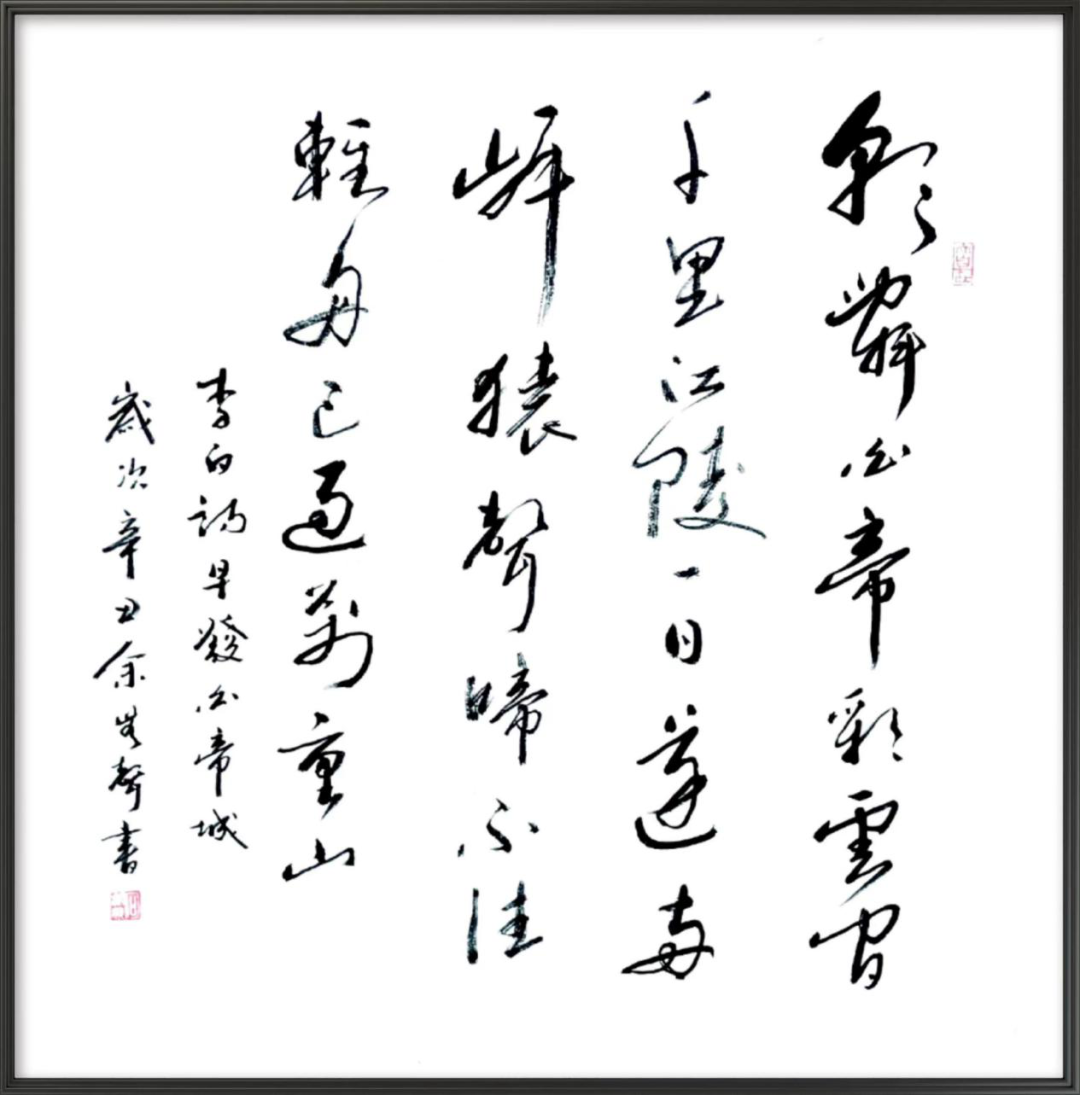 朝辭白帝彩雲間
千里江陵一日還兩
岸猿聲啼不住
輕舟已過萬重山
李白詩早發白帝城
歲次辛丑余聲書